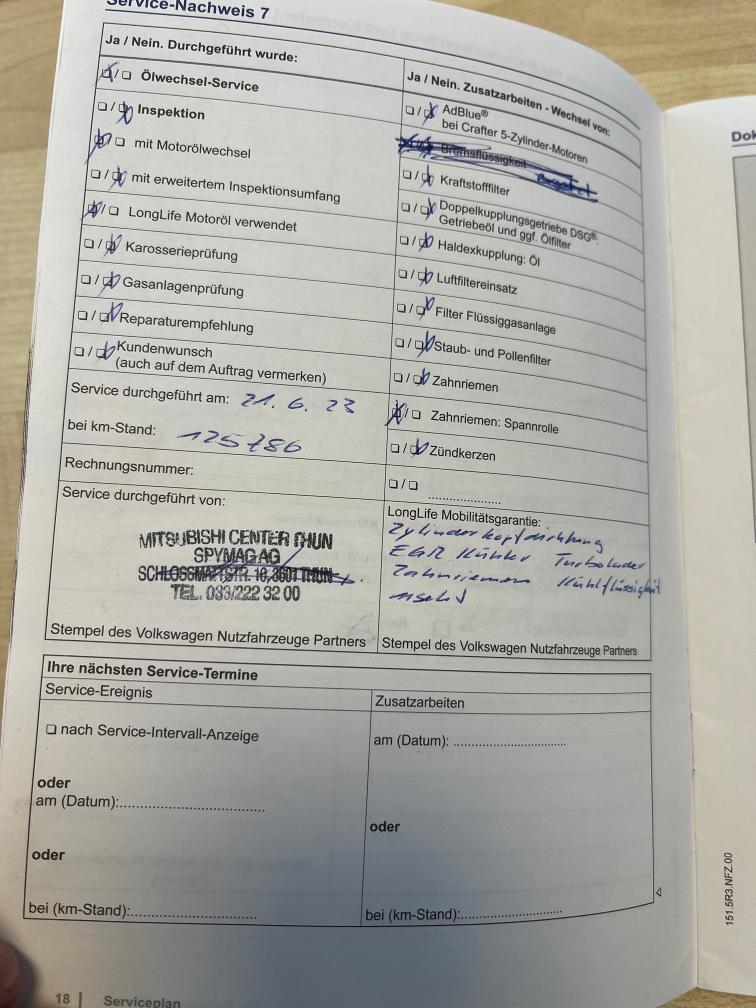 Service-Nachweis 7
Ja / Nein. Durchgeführt wurde:
☒/☐ Ölwechsel-Service
☐/☒ Inspektion
☒/☐ mit Motorölwechsel
☐/☒ mit erweitertem Inspektionsumfang
☒/☐ LongLife Motoröl verwendet
☐/☒ Karosserieprüfung
☐/☒ Gasanlagenprüfung
☐/☒ Reparaturempfehlung
☐/☒ Kundenwunsch
(auch auf dem Auftrag vermerken)
Service durchgeführt am: 21. 6. 23
bei km-Stand: 125786
Rechnungsnummer:
Service durchgeführt von:
MITSUBISHI CENTER THUN
SPYMAG AG
SCHLOSSMATTSTR. 10, 3601 THUN
TEL. 033/222 32 00
Stempel des Volkswagen Nutzfahrzeuge Partners
Ja / Nein. Zusatzarbeiten - Wechsel von:
☐/☒ AdBlue®
bei Crafter 5-Zylinder-Motoren
Bremsflüssigkeit
☐/☒ Kraftstofffilter
☐/☒ Doppelkupplungsgetriebe DSG®:
Getriebeöl und ggf. Ölfilter
☐/☒ Haldexkupplung: Öl
☐/☒ Luftfiltereinsatz
☐/☒ Filter Flüssiggasanlage
☐/☒ Staub- und Pollenfilter
☐/☒ Zahnriemen
☒/☐ Zahnriemen: Spannrolle
☐/☒ Zündkerzen
☐/☐ ....................
LongLife Mobilitätsgarantie:
Zylinderkopfdichtung
EGR Kühler Turbolader
Zahnriemen Kühlflüssigkeit
Stempel des Volkswagen Nutzfahrzeuge Partners
Ihre nächsten Service-Termine
Service-Ereignis
☐ nach Service-Intervall-Anzeige
oder
am (Datum):..............................
oder
bei (km-Stand):..........................
Zusatzarbeiten
am (Datum): ..............................
oder
bei (km-Stand):........................
18 | Serviceplan
151.5R3.NFZ.00
Dok